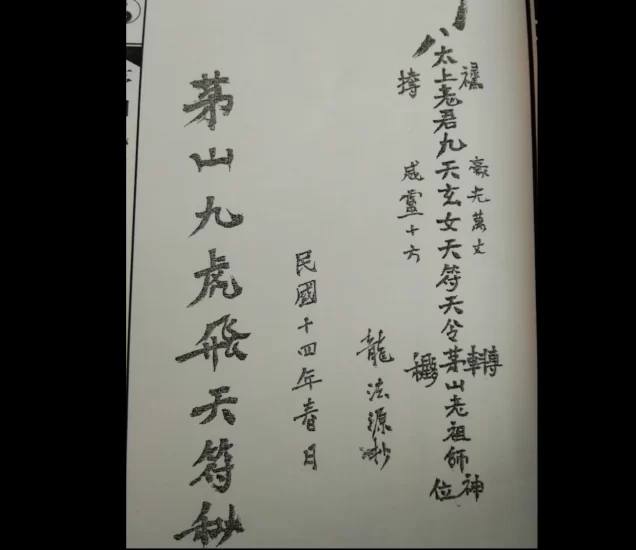 豪光萬丈
太上老君九天玄女天符天令茅山老祖師神位
咸靈十方
龍法源抄
民國十四年春日
茅山九虎飛天符秘